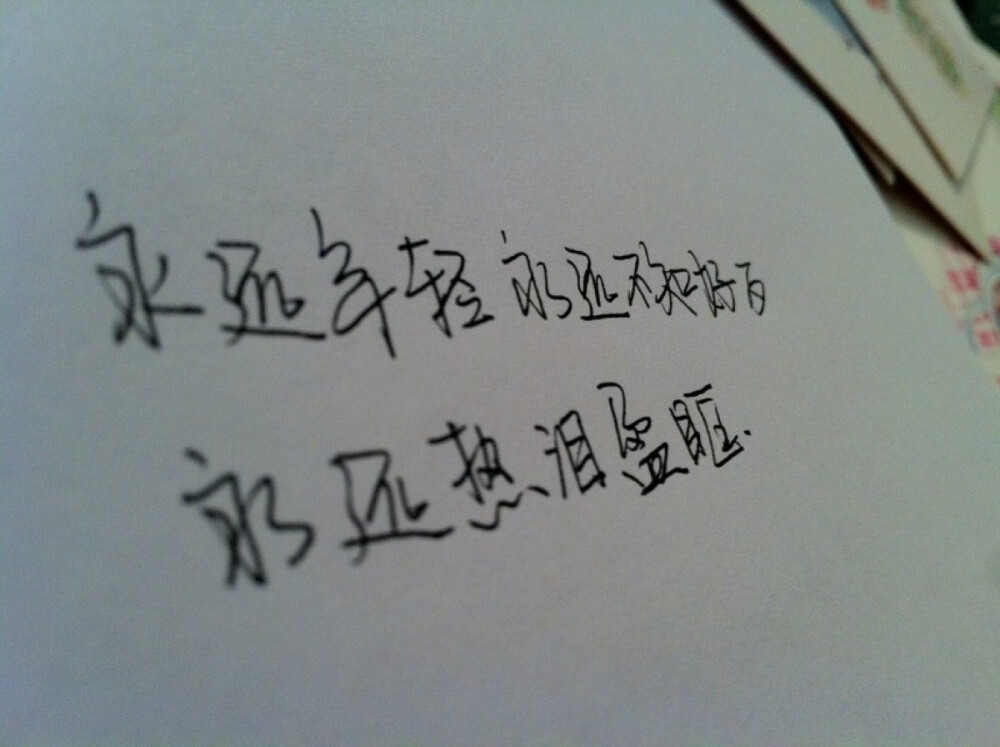 永远年轻 永远不知好歹
永远热泪盈眶.